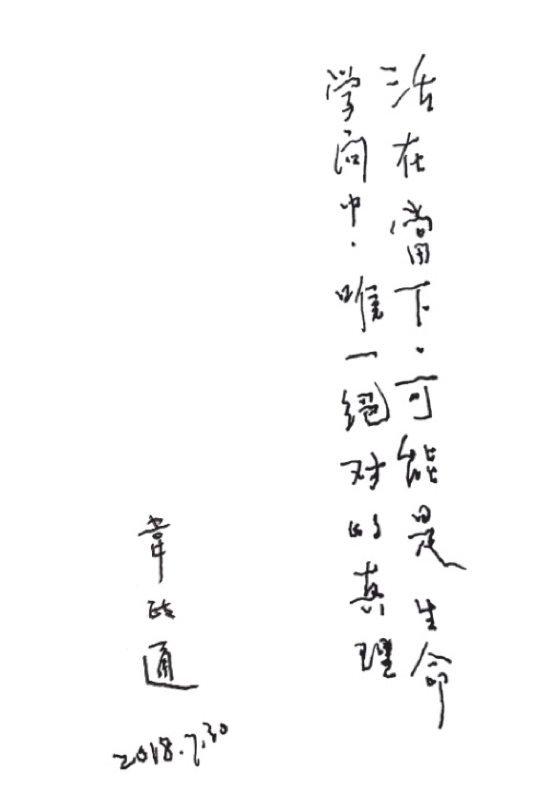 活在當下·可能是生命
学问中·唯一絕对的真理
韋政通
2018.7.30